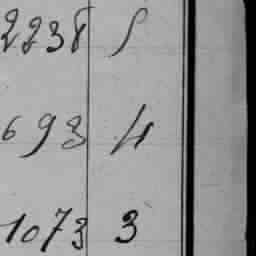 2238
693 4
1073 3